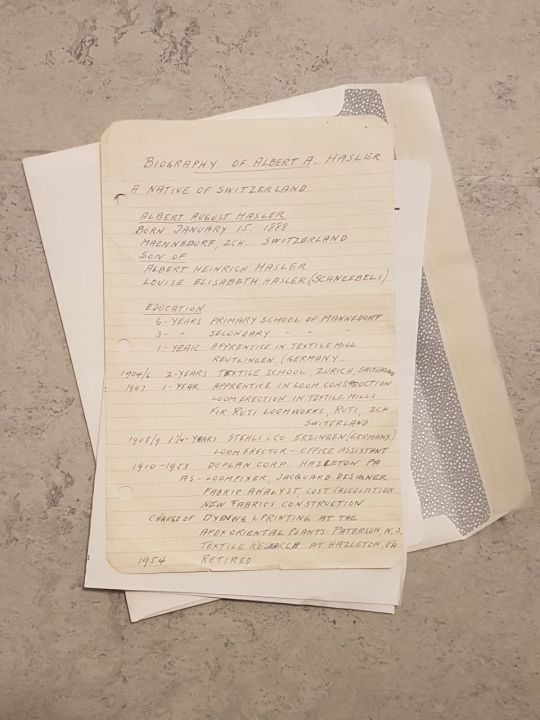 BIOGRAPHY OF ALBERT A. HASLER
A NATIVE OF SWITZERLAND
ALBERT AUGUST HASLER
BORN JANUARY 15. 1888
MAENNEDORF, ZCH. SWITZERLAND
SON OF
ALBERT HEINRICH HASLER
LOUISE ELISABETH HASLER (SCHNEEBELI)
EDUCATION
6- YEARS PRIMARY SCHOOL OF MANNEDORF
3- " SECONDARY " " "
1- YEAR APPRENTICE IN TEXTILE MILL
REUTLINGEN (GERMANY.
2-YEARS TEXTILE SCHOOL, ZURICH, SWITZERLAND
1907 1-YEAR APPRENTICE IN LOOM CONSTRUCTION
LOOM ERECTION IN TEXTILE MILLS
FOR RUTI LOOMWORKS, RUTI, ZCH
SWITERLAND
1908/9 1¼-YEARS STEHLI & CO ERZINGEN (GERMANY)
LOOM ERECTOR - OFFICE ASSISTANT
1910-1953 DUPLAN CORP. HAZLETON PA
AS - LOOMFIXER, JACQUARD DESIGNER
FABRIC ANALYST COST CALCULATION
NEW FABRICS CONSTRUCTION
CHARGE OF DYEING & PRINTING AT THE
APEX ORIENTAL PLANTS. PATERSON, N.J.
TEXTILE RESEARCH AT HAZLETON, PA
1954 RETIRED